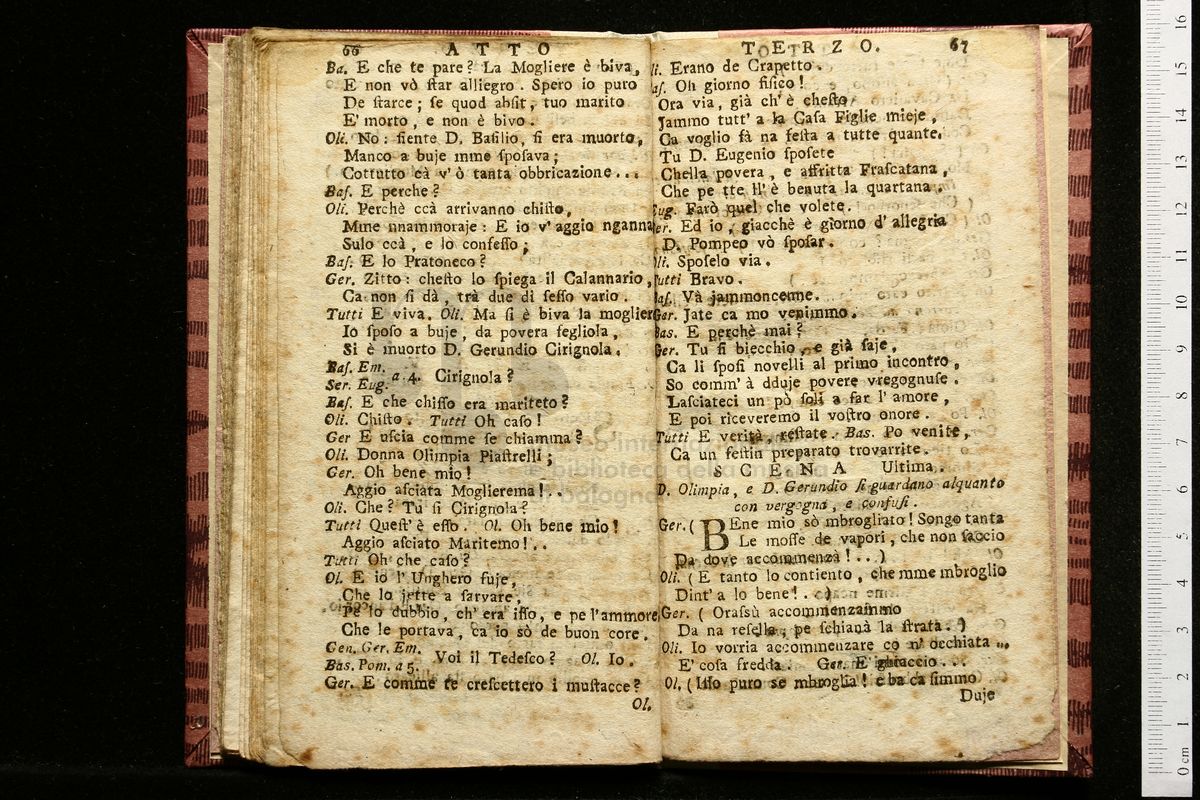 66 ATTO
Ba. E che te pare? La Mogliere è biva,
E non vò ſtar alliegro. Spero io puro
De ſtarce; ſe quod abſit, tuo marito
E' morto, e non è bivo.
Oli. No: ſiente D. Baſilio, ſi era muorto,
Manco a buje mme ſpoſava;
Cottutto cà v' ò tanta obbricazione...
Baſ. E perche?
Oli. Perchè ccà arrivanno chiſto,
Mme nnammoraje: E io v' aggio nganna
Sulo ccà, e lo confeſſo;
Baſ. E lo Pratoneco?
Ger. Zitto: cheſto lo ſpiega il Calannario,
Ca non ſi dà, trà due di ſeſſo vario.
Tutti E viva. Oli. Ma ſi è biva la moglier
Io ſpoſo a buje, da povera fegliola,
Si è muorto D. Gerundio Cirignola.
Baſ. Em.
Ser. Eug. a 4. Cirignola?
Baſ. E che chiſſo era mariteto?
Oli. Chiſto. Tutti Oh caſo!
Ger E uſcia comme ſe chiamma?
Oli. Donna Olimpia Piaſtrelli;
Ger. Oh bene mio!
Aggio aſciata Moglierema!..
Oli. Che? Tu ſi Cirignola?
Tutti Queſt' è eſſo. Ol. Oh bene mio!
Aggio aſciato Maritemo!..
Tutti Oh che caſo?
Ol. E io l' Unghero fuje,
Che lo jette a ſarvare,
Pe lo dubbio, ch' era iſſo, e pe l'ammore
Che le portava, ca io sò de buon core.
Gen. Ger. Em.
Bas. Pom. a 5. Voi il Tedeſco? Ol. Io.
Ger. E comme te creſcettero i muſtacce?
Ol.
TERZO. 67
li. Erano de Crapetto.
aſ. Oh giorno fiſico!
Ora via, già ch' è cheſto
Jammo tutt' a la Caſa Figlie mieje,
Ca voglio fà na feſta a tutte quante.
Tu D. Eugenio ſpoſete
Chella povera, e affritta Fraſcatana,
Che pe tte ll' è benuta la quartana.
Eug. Farò quel che volete.
er. Ed io, giacchè è giorno d' allegria
D. Pompeo vò ſpoſar.
li. Spoſelo via.
Tutti Bravo.
aſ. Và jammoncenne.
Ger. Jate ca mo venimmo.
Bas. E perchè mai?
Ger. Tu ſi biecchio, e già ſaje,
Ca li ſpoſi novelli al primo incontro,
So comm' à dduje povere vregognuſe.
Laſciateci un pò ſoli a far l' amore,
E poi riceveremo il voſtro onore.
Tutti E verità, reſtate. Bas. Po venite,
Ca un feſtin preparato trovarrite.
SCENA Ultima.
D. Olimpia, e D. Gerundio ſi guardano alquanto
con vergogna, e confuſi.
Ger. ( BEne mio sò mbrogliato! Songo tanta
Le moſſe de vapori, che non ſaccio
Da dove accommenza!...)
Oli. ( E tanto lo contiento, che mme mbroglio
Dint' a lo bene!..)
Ger. ( Oraſsù accommenzammo
Da na reſella, pe ſchianà la ſtrata.)
Oli. Io vorria accommenzare co n' occhiata...
E' coſa fredda. Ger. E' ghiaccio...
Ol. ( Iſſo puro se mbroglia! e ba ca ſimmo
Duje